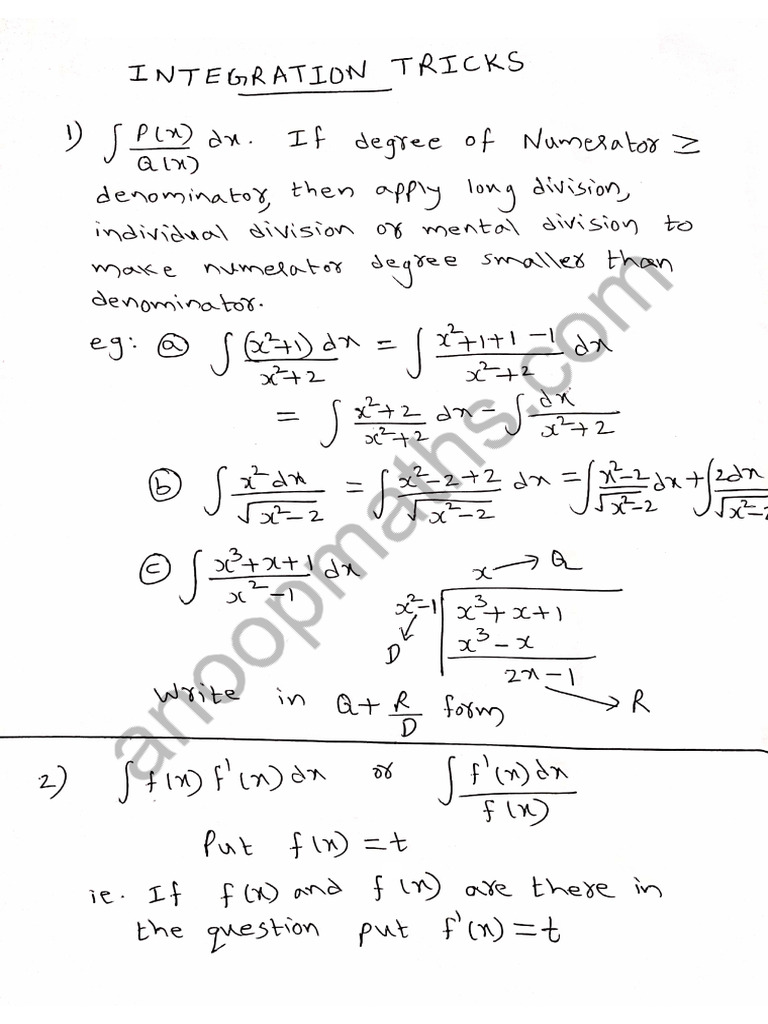 INTEGRATION TRICKS
1) ∫ P(x)/Q(x) dx. If degree of Numerator ≥
denominator, then apply long division,
individual division or mental division to
make numerator degree smaller than
denominator.
eg: (a) ∫ (x²+1) dx / x²+2 = ∫ x²+1+1-1 / x²+2 dx
= ∫ x²+2 / x²+2 dx - ∫ dx / x²+2
(b) ∫ x² dx / √x²-2 = ∫ x²-2+2 / √x²-2 dx = ∫ x²-2 / √x²-2 dx + ∫ 2dx / √x²-2
(c) ∫ x³+x+1 / x²-1 dx
x → Q
x²-1 | x³+x+1
D
x³-x
2x-1
R
Write in Q + R/D form
2) ∫ f(x) f'(x) dx or ∫ f'(x) dx / f(x)
Put f(x) = t
ie. If f(x) and f(x) are there in
the question put f'(x) = t
anoopmaths.com